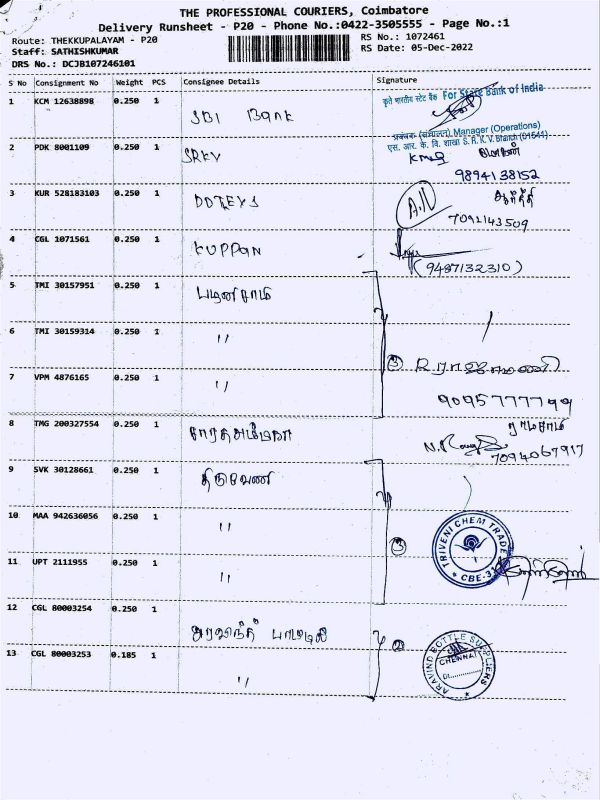 THE PROFESSIONAL COURIERS, Coimbatore
Delivery Runsheet - P20 - Phone No.:0422-3505555 - Page No.:1
Route: THEKKUPALAYAM - P20
RS No.: 1072461
Staff: SATHISHKUMAR
RS Date: 05-Dec-2022
DRS No.: DCJB107246101
S No Consignment No Weight PCS Consignee Details Signature
1 KCM 12638898 0.250 1 SBI Bank
कृते भारतीय स्टेट बैंक For State Bank of India
प्रबंधक (संचालन) Manager (Operations)
एस. आर. के. वि. शाखा S. R. K. V. Branch (01544)
2 PDK 8001109 0.250 1 SRKV
9894138152
3 KUR 528183103 0.250 1
7092143509
4 CGL 1071561 0.250 1 KUPPAN
(9487132310)
5 TMI 30157951 0.250 1 பழனிசாமி
6 TMI 30159314 0.250 1 "
7 VPM 4876165 0.250 1 "
③
9095777799
8 TMG 200327554 0.250 1
ராமசாமி
7094067917
9 SVK 30128661 0.250 1 திருவேணி
10 MAA 942636056 0.250 1 "
③
TRIVENI CHEM TRADE
CBE-3
11 UPT 2111955 0.250 1 "
12 CGL 80003254 0.250 1 அரவிந்த் பாட்டில்
②
13 CGL 80003253 0.185 1 "
ARAVIND BOTTLE SUPPLIERS
CHENNAI